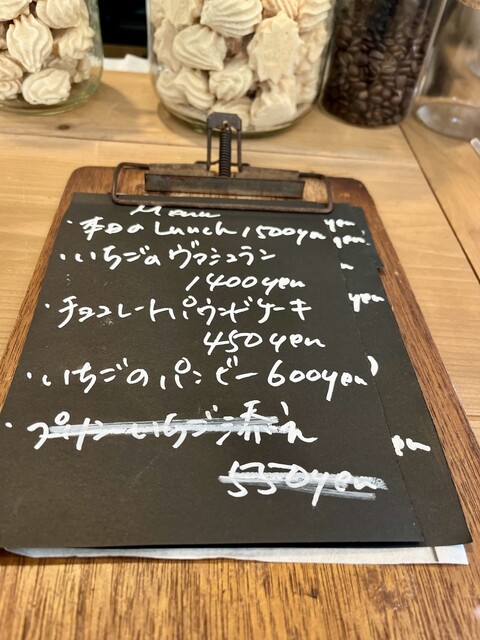 Menu
・本日のLunch 1500yen
・いちごのヴァシュラン
1400yen
・チョコレートパウンドケーキ
450yen
・いちごのパンビー600yen
・プリンいちご添え
550yen
yen
yen.
n
yen
yen